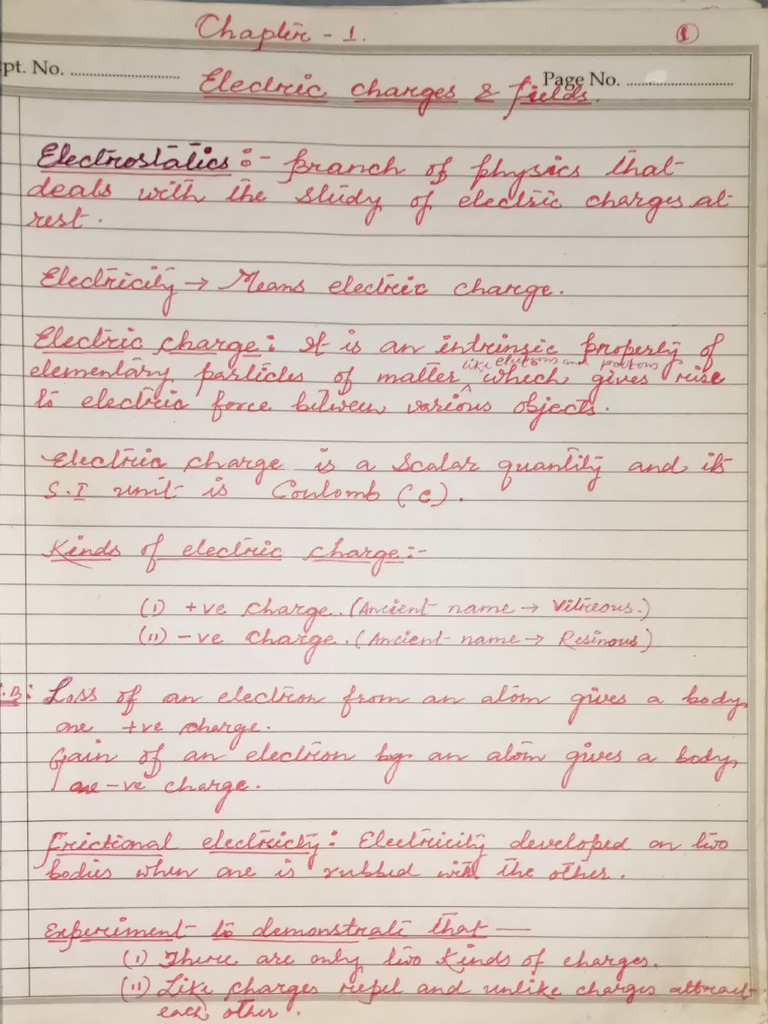 Chapter - 1.
1
pt. No. ..............................
Page No. ..............................
Electric charges & fields.
Electrostatics :- Branch of physics that
deals with the study of electric charges at
rest.
Electricity → Means electric charge.
Electric charge: It is an intrinsic property of
like electrons and protons
elementary particles of matter ^ which gives rise
to electric force between various objects.
Electric charge is a scalar quantity and its
S.I unit is Coulomb (C).
Kinds of electric charge:-
(i) +ve charge. (Ancient name → Vitreous.)
(ii) -ve charge. (Ancient name → Resinous)
.B: Loss of an electron from an atom gives a body
one +ve charge.
Gain of an electron by an atom gives a body
one -ve charge.
Frictional electricity: Electricity developed on two
bodies when one is rubbed with the other.
Experiment to demonstrate that —
(i) There are only two kinds of charges.
(ii) Like charges repel and unlike charges attract
each other.